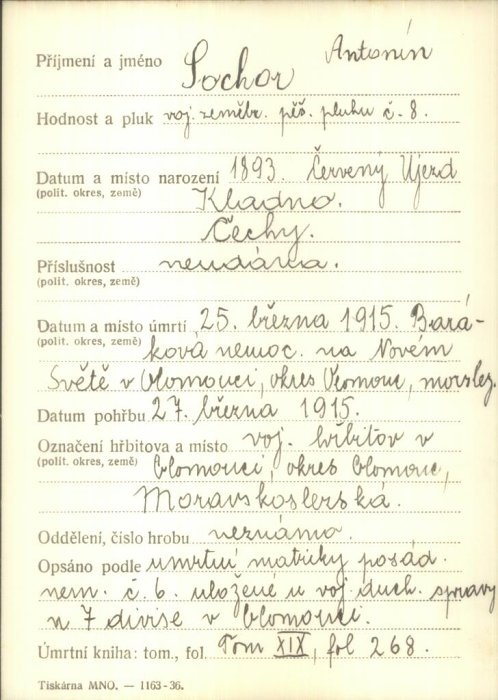 Příjmení a jméno Sochor Antonín
Hodnost a pluk voj. zeměbr. pěš. pluku č. 8.
Datum a místo narození 1893. Červený Ujezd
(polit. okres, země) Kladno.
Čechy.
Příslušnost neudána.
(polit. okres, země)
Datum a místo úmrtí 25. března 1915. Bará-
(polit. okres, země) ková nemoc. na Novém
Světě v Olomouci, okres Olomouc, mor.slez.
Datum pohřbu 27. března 1915.
Označení hřbitova a místo voj. hřbitov v
(polit. okres, země) Olomouci, okres Olomouc,
Moravskoslezská.
Oddělení, číslo hrobu neznámo.
Opsáno podle úmrtní matriky posád.
nem. č. 6. uložené u voj. duch. správy
u 7 divise v Olomouci.
Úmrtní kniha: tom., fol. Tom XIX, fol 268.
Tiskárna MNO. — 1163-36.